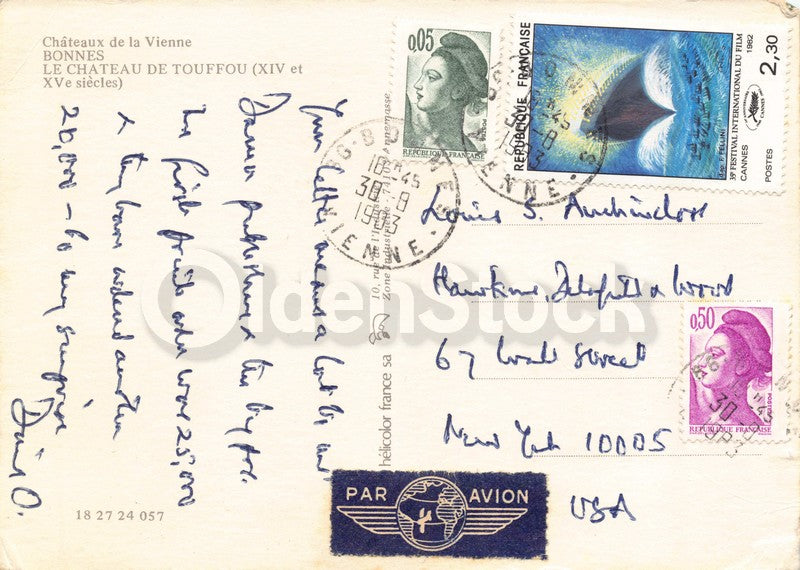 Châteaux de la Vienne
BONNES
LE CHATEAU DE TOUFFOU (XIV et
XVe siècles)
Your letter means a lot to me
David publishing the big for.
The first print order was 25,000
& they have ordered another
20,000 – to my surprise
David O.
18 27 24 057
hélicolor france sa
10, rue de l'Indus
Zone Industrielle - 7410 Annemasse
0,05
REPUBLIQUE FRANÇAISE
REPUBLIQUE FRANÇAISE
1982
2,30
35e FESTIVAL INTERNATIONAL DU FILM
CANNES
POSTES
BONNES
18H45
30-8
1983
VIENNE
Louis S. Auchincloss
Hawkins, Delafield & Wood
67 Wall Street
New York 10005
USA
0,50
REPUBLIQUE FRANÇAISE
PAR AVION
OldenStock